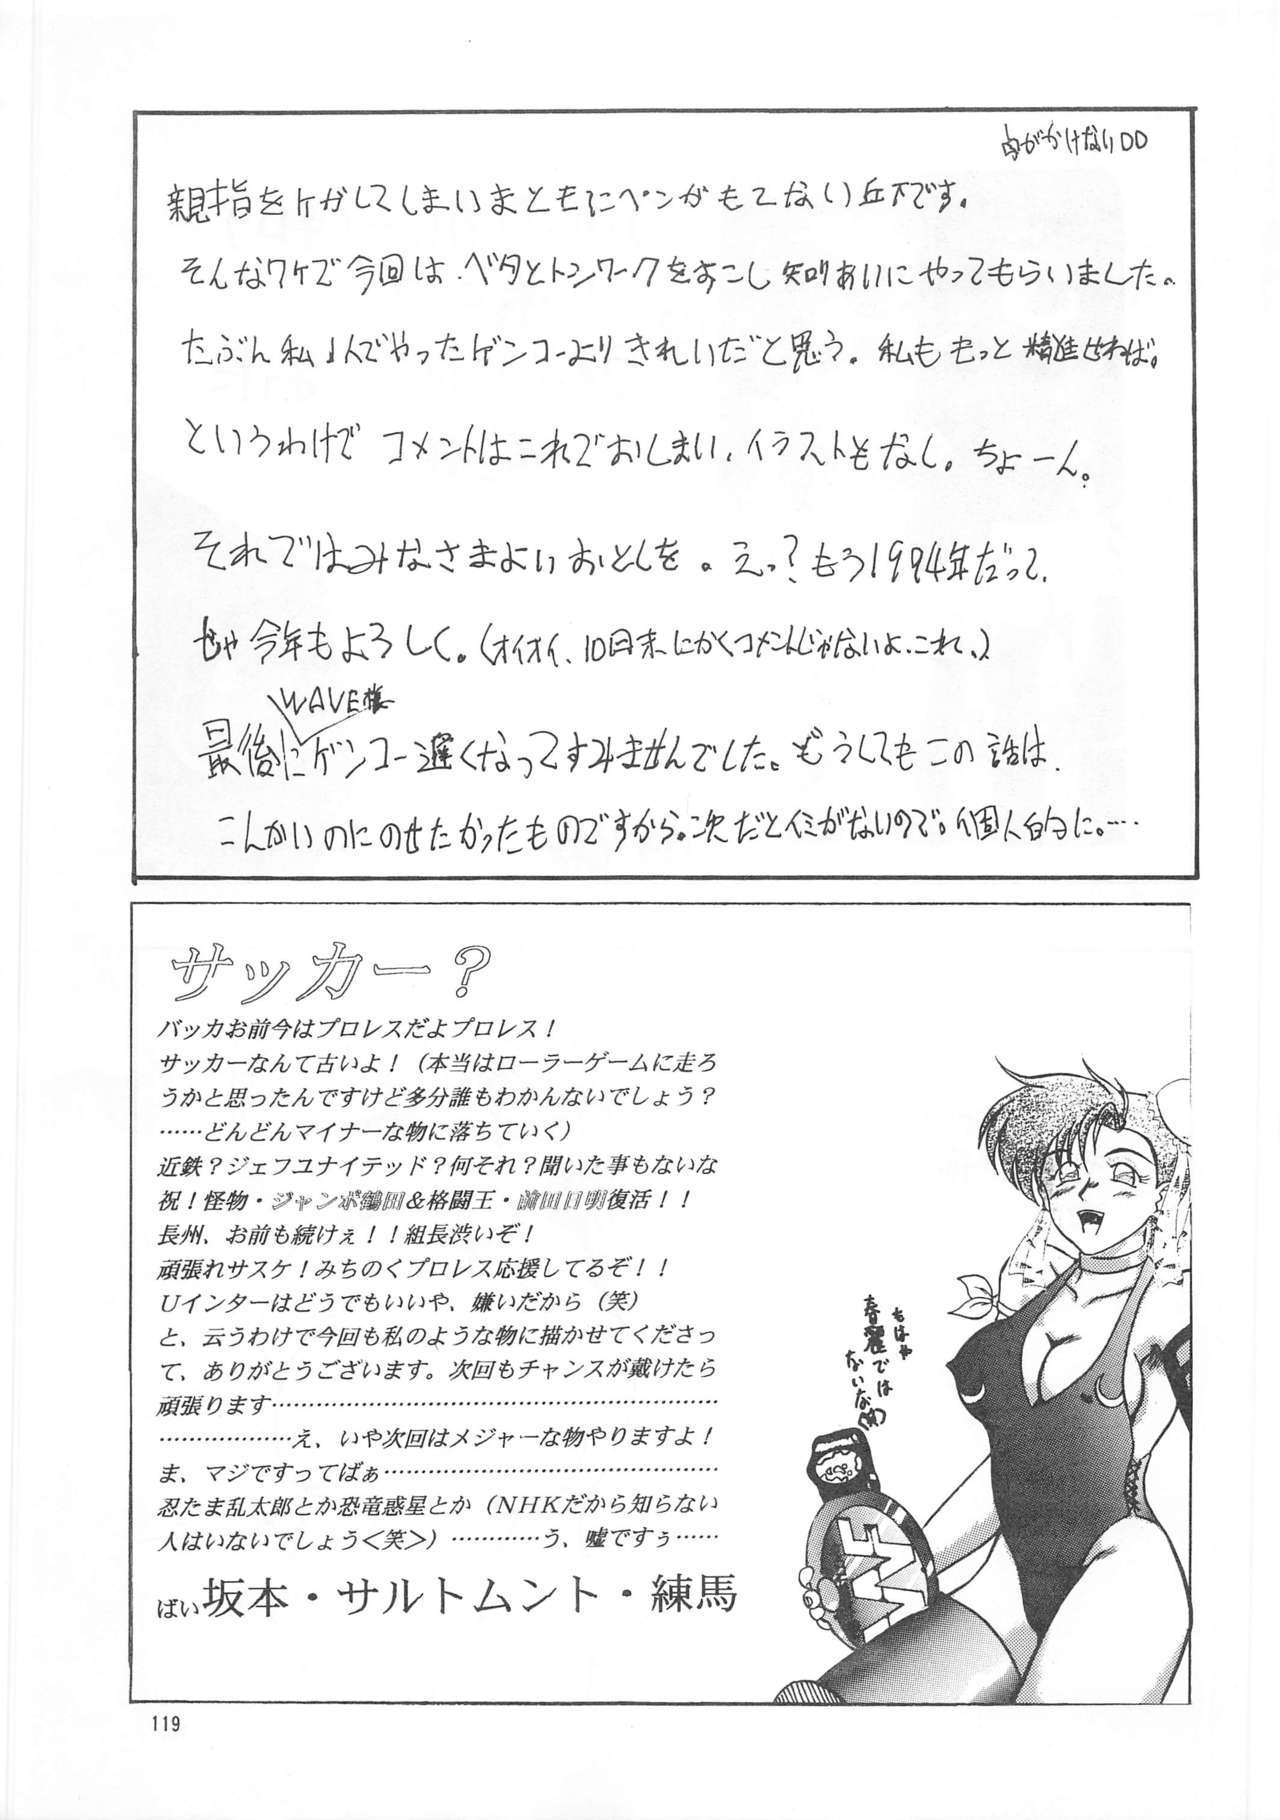 字がかけないDD
親指をケガしてしまいまともにペンがもてない丘下です。
そんなワケで今回は、ベタとトンワークをすこし知りあいにやってもらいました。
たぶん私1人でやったゲンコーよりきれいだと思う。私ももっと精進せねば。
というわけでコメントはこれでおしまい、イラストもなし。ちょーん。
それではみなさまよいおとしを。えっ?もう1994年だって、
じゃ今年もよろしく。(オイオイ、10日末にかくコメントじゃないよ、これ、)
WAVE様
最後にゲンコー遅くなってすみませんでした。どうしてもこの話は、
こんかいのにのせたかったものですから。次だとイミがないので。個人的に。…
サッカー?
バッカお前今はプロレスだよプロレス!
サッカーなんて古いよ!(本当はローラーゲームに走ろ
うかと思ったんですけど多分誰もわかんないでしょう?
……どんどんマイナーな物に落ちていく)
近鉄?ジェフユナイテッド?何それ?聞いた事もないな
祝!怪物・ジャンボ鶴田&格闘王・前田日明復活!!
長州、お前も続けぇ!!組長渋いぞ!
頑張れサスケ!みちのくプロレス応援してるぞ!!
Uインターはどうでもいいや、嫌いだから(笑)
と、云うわけで今回も私のような物に描かせてくださっ
て、ありがとうございます。次回もチャンスが戴けたら
頑張ります……………………………………………………
………………え、いや次回はメジャーな物やりますよ!
ま、マジですってばぁ………………………………………
忍たま乱太郎とか恐竜惑星とか(NHKだから知らない
人はいないでしょう<笑>)…………う、嘘ですぅ……
ばい坂本・サルトムント・練馬
もはや
春麗では
ないな(笑)
WWF
119